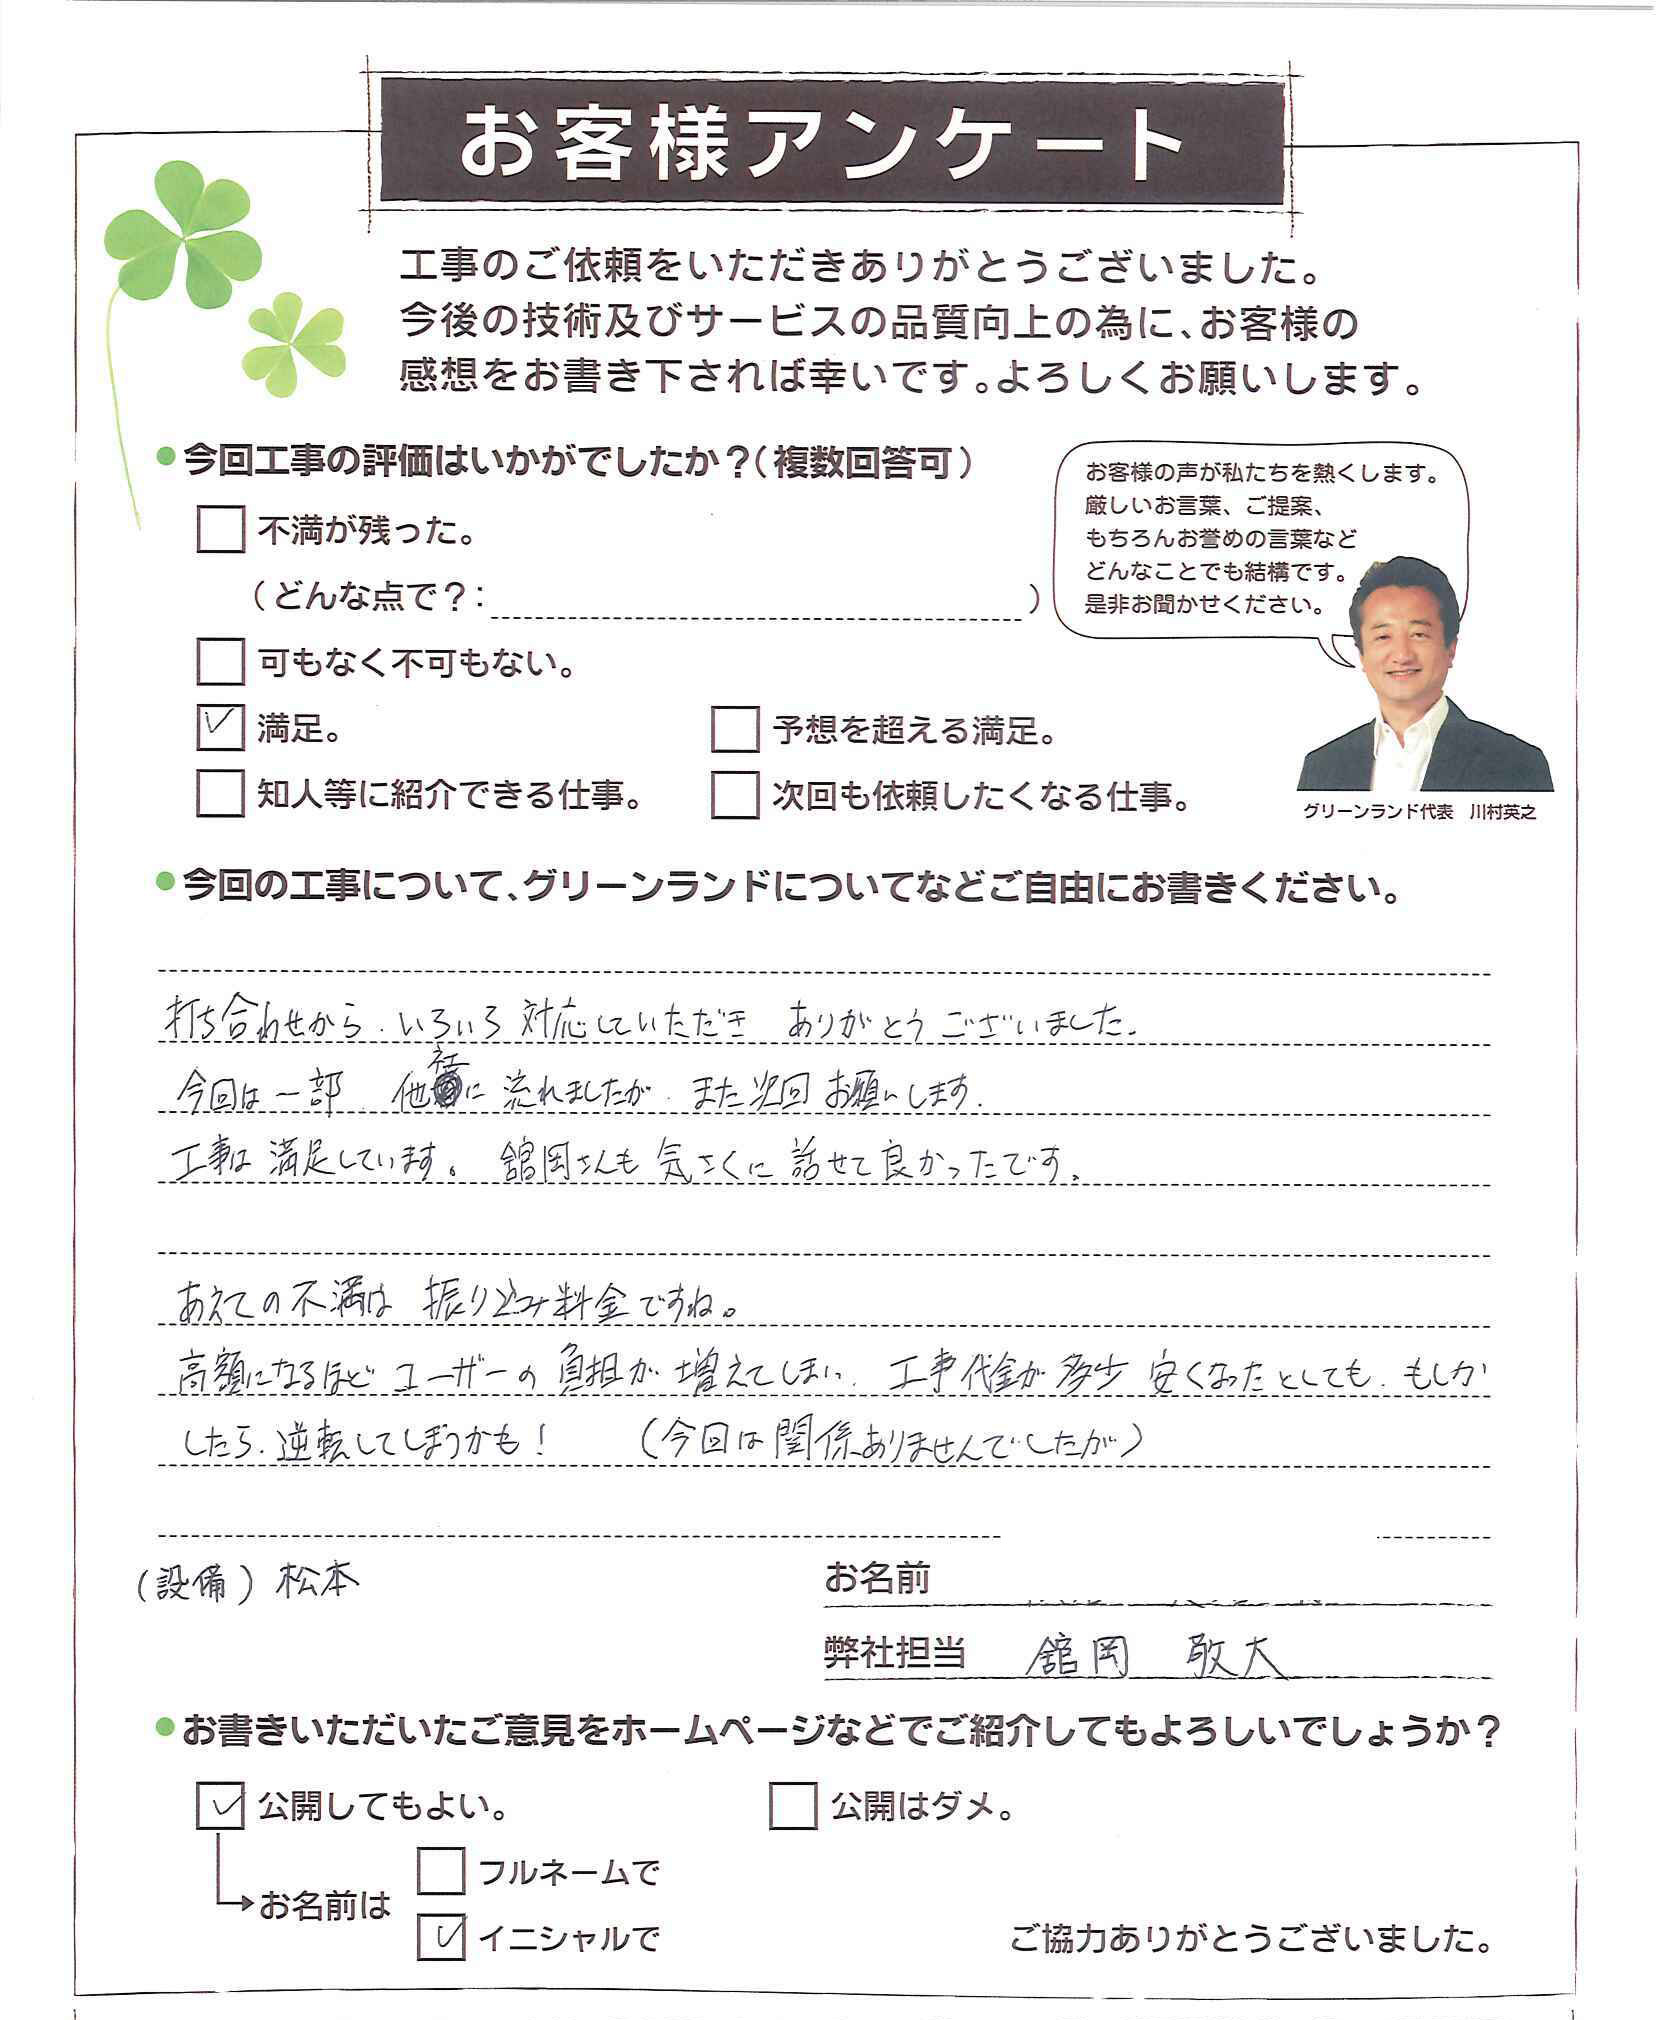 お客様アンケート
工事のご依頼をいただきありがとうございました。
今後の技術及びサービスの品質向上の為に、お客様の
感想をお書き下されば幸いです。よろしくお願いします。
今回工事の評価はいかがでしたか?(複数回答可)
不満が残った。
(どんな点で?: )
可もなく不可もない。
満足。
予想を超える満足。
知人等に紹介できる仕事。
次回も依頼したくなる仕事。
お客様の声が私たちを熱くします。
厳しいお言葉、ご提案、
もちろんお誉めの言葉など
どんなことでも結構です。
是非お聞かせください。
グリーンランド代表 川村英之
今回の工事について、グリーンランドについてなどご自由にお書きください。
打ち合わせから、いろいろ対応していただき ありがとうございました。
今回は一部 他社に 流れましたが、また次回お願いします。
工事は満足しています。舘岡さんも気さくに話せて良かったです。
あえての不満は 振り込み料金ですね。
高額になるほど ユーザーの負担が増えてしまい、工事代金が多少安くなったとしても、もしか
したら、逆転してしまうかも! (今回は関係ありませんでしたが)
(設備) 松本
お名前
弊社担当 舘岡 敬大
お書きいただいたご意見をホームページなどでご紹介してもよろしいでしょうか?
公開してもよい。
公開はダメ。
お名前は
フルネームで
イニシャルで
ご協力ありがとうございました。